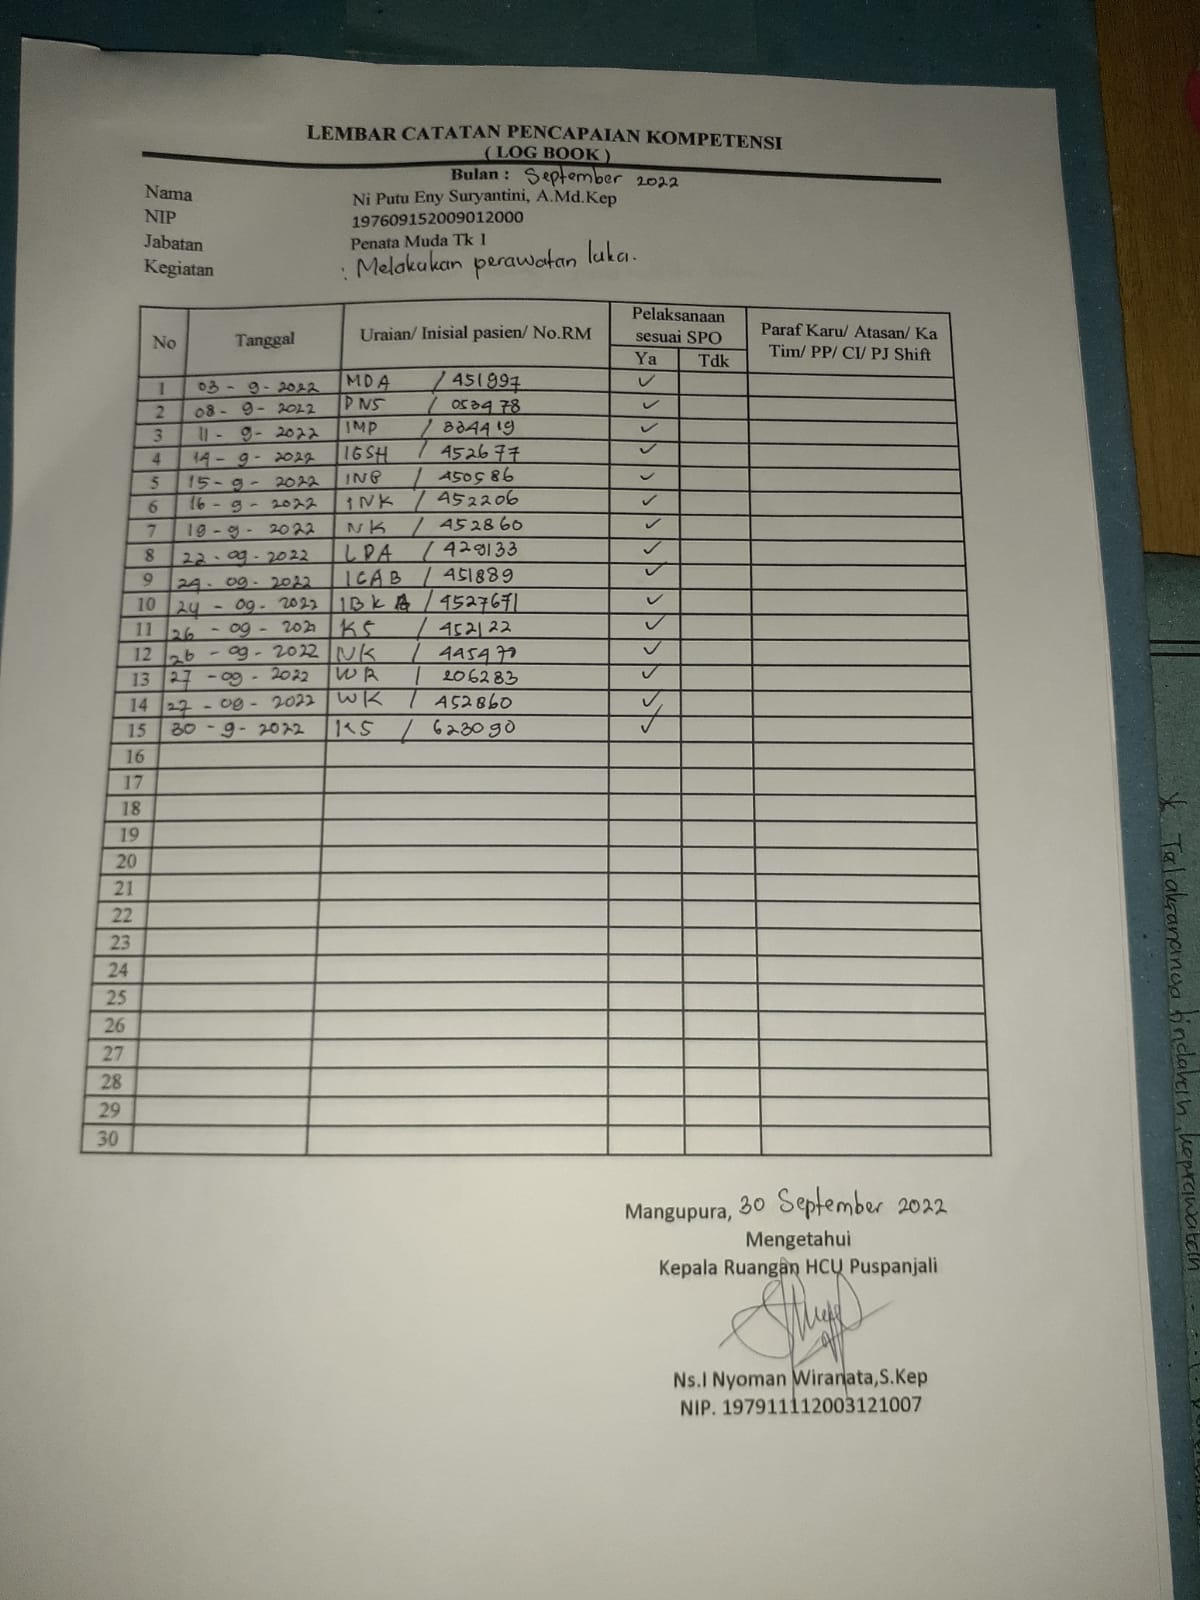 LEMBAR CATATAN PENCAPAIAN KOMPETENSI
( LOG BOOK )
Bulan : September 2022
Nama Ni Putu Eny Suryantini, A.Md.Kep
NIP 197609152009012000
Jabatan Penata Muda Tk 1
Kegiatan : Melakukan perawatan luka.
No Tanggal Uraian/ Inisial pasien/ No.RM Pelaksanaan sesuai SPO Paraf Karu/ Atasan/ Ka Tim/ PP/ CI/ PJ Shift
Ya Tdk
1 03 - 9 - 2022 MDA / 451997 ✓
2 08 - 9 - 2022 PNS / 053478 ✓
3 11 - 9 - 2022 IMP / 334419 ✓
4 14 - 9 - 2022 IGSH / 452677 ✓
5 15 - 9 - 2022 / 450586 ✓
6 16 - 9 - 2022 INK / 452206 ✓
7 19 - 9 - 2022 NK / 452860 ✓
8 22 - 09 - 2022 LPA / 429133 ✓
9 24 - 09 - 2022 ICAB / 451889 ✓
10 24 - 09 - 2022 IBK / 4527671 ✓
11 26 - 09 - KS / 452122 ✓
12 26 - 09 - 2022 NK / ✓
13 27 - 09 - 2022 WR / 206283 ✓
14 27 - 09 - 2022 WK / 452860 ✓
15 30 - 9 - 2022 KS / 623090 ✓
16
17
18
19
20
21
22
23
24
25
26
27
28
29
30
Mangupura, 30 September 2022
Mengetahui
Kepala Ruangan HCU Puspanjali
Ns.I Nyoman Wiranata,S.Kep
NIP. 197911112003121007